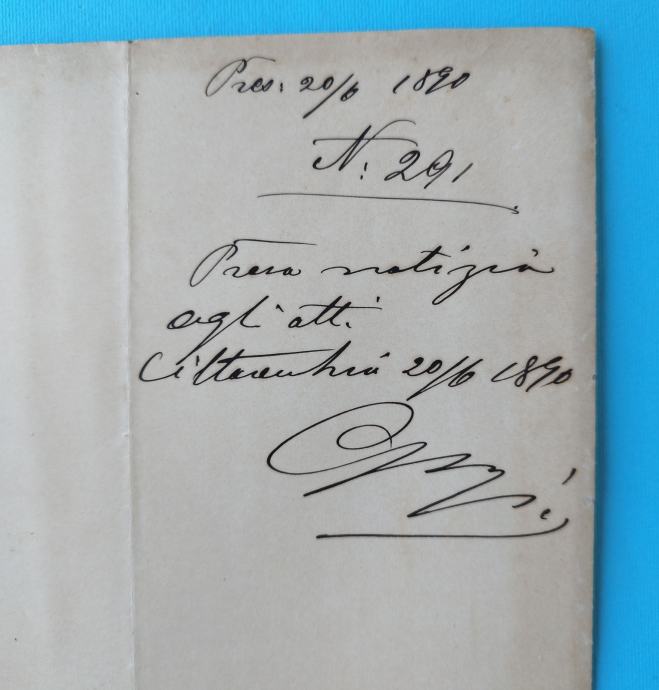 Pres: 20/6 1890
N: 291
Presa notizia
agli atti
Cittavecchia 20/6 1890